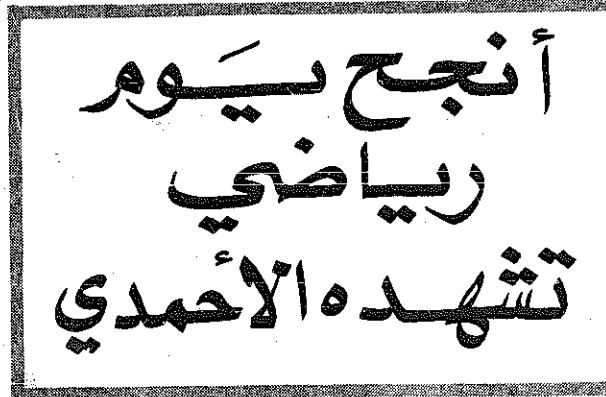 أنجح يَوم
رياضي
تشهده الأحمدي